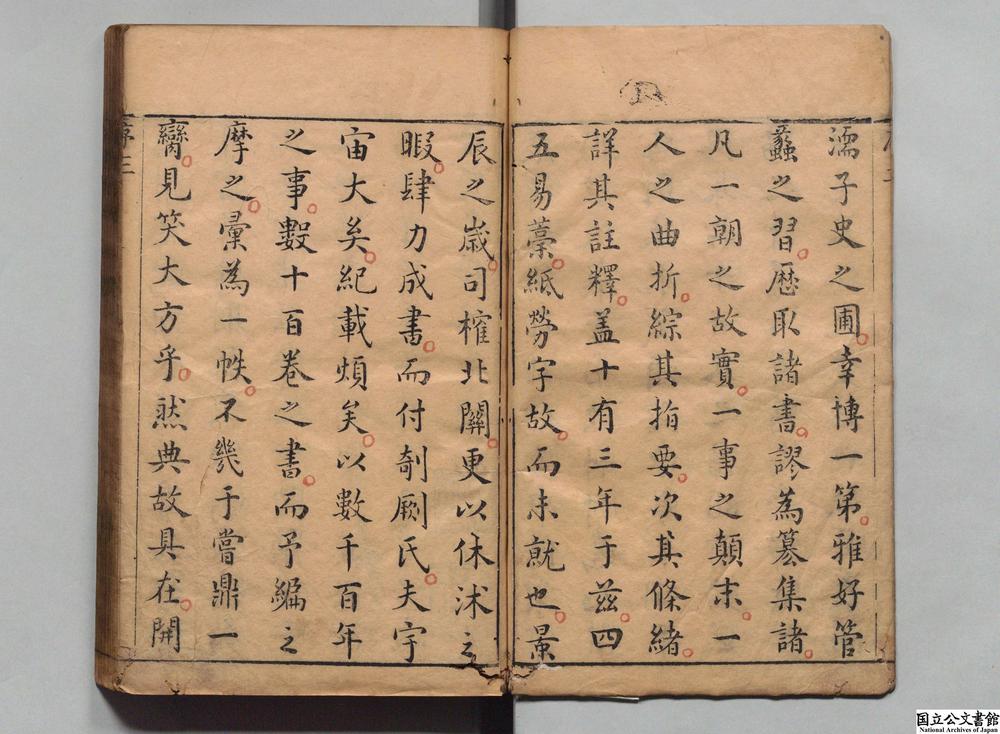 濡子史之圃幸博一第雅好管
蠡之習歷取諸書謬為纂集諸
凡一朝之故實一事之顛末一
人之曲折綜其指要次其條緒
詳其註釋盖十有三年于兹四
五易藁紙勞字故而未就也景
辰之歲司榷北關更以休沐之
暇肆力成書而付剞劂氏夫宇
宙大矣紀載煩矣以數千百年
之事數十百卷之書而予編之
摩之彙為一帙不幾于嘗鼎一
臠見笑大方乎然典故具在開
序三
国立公文書館
National Archives of Japan